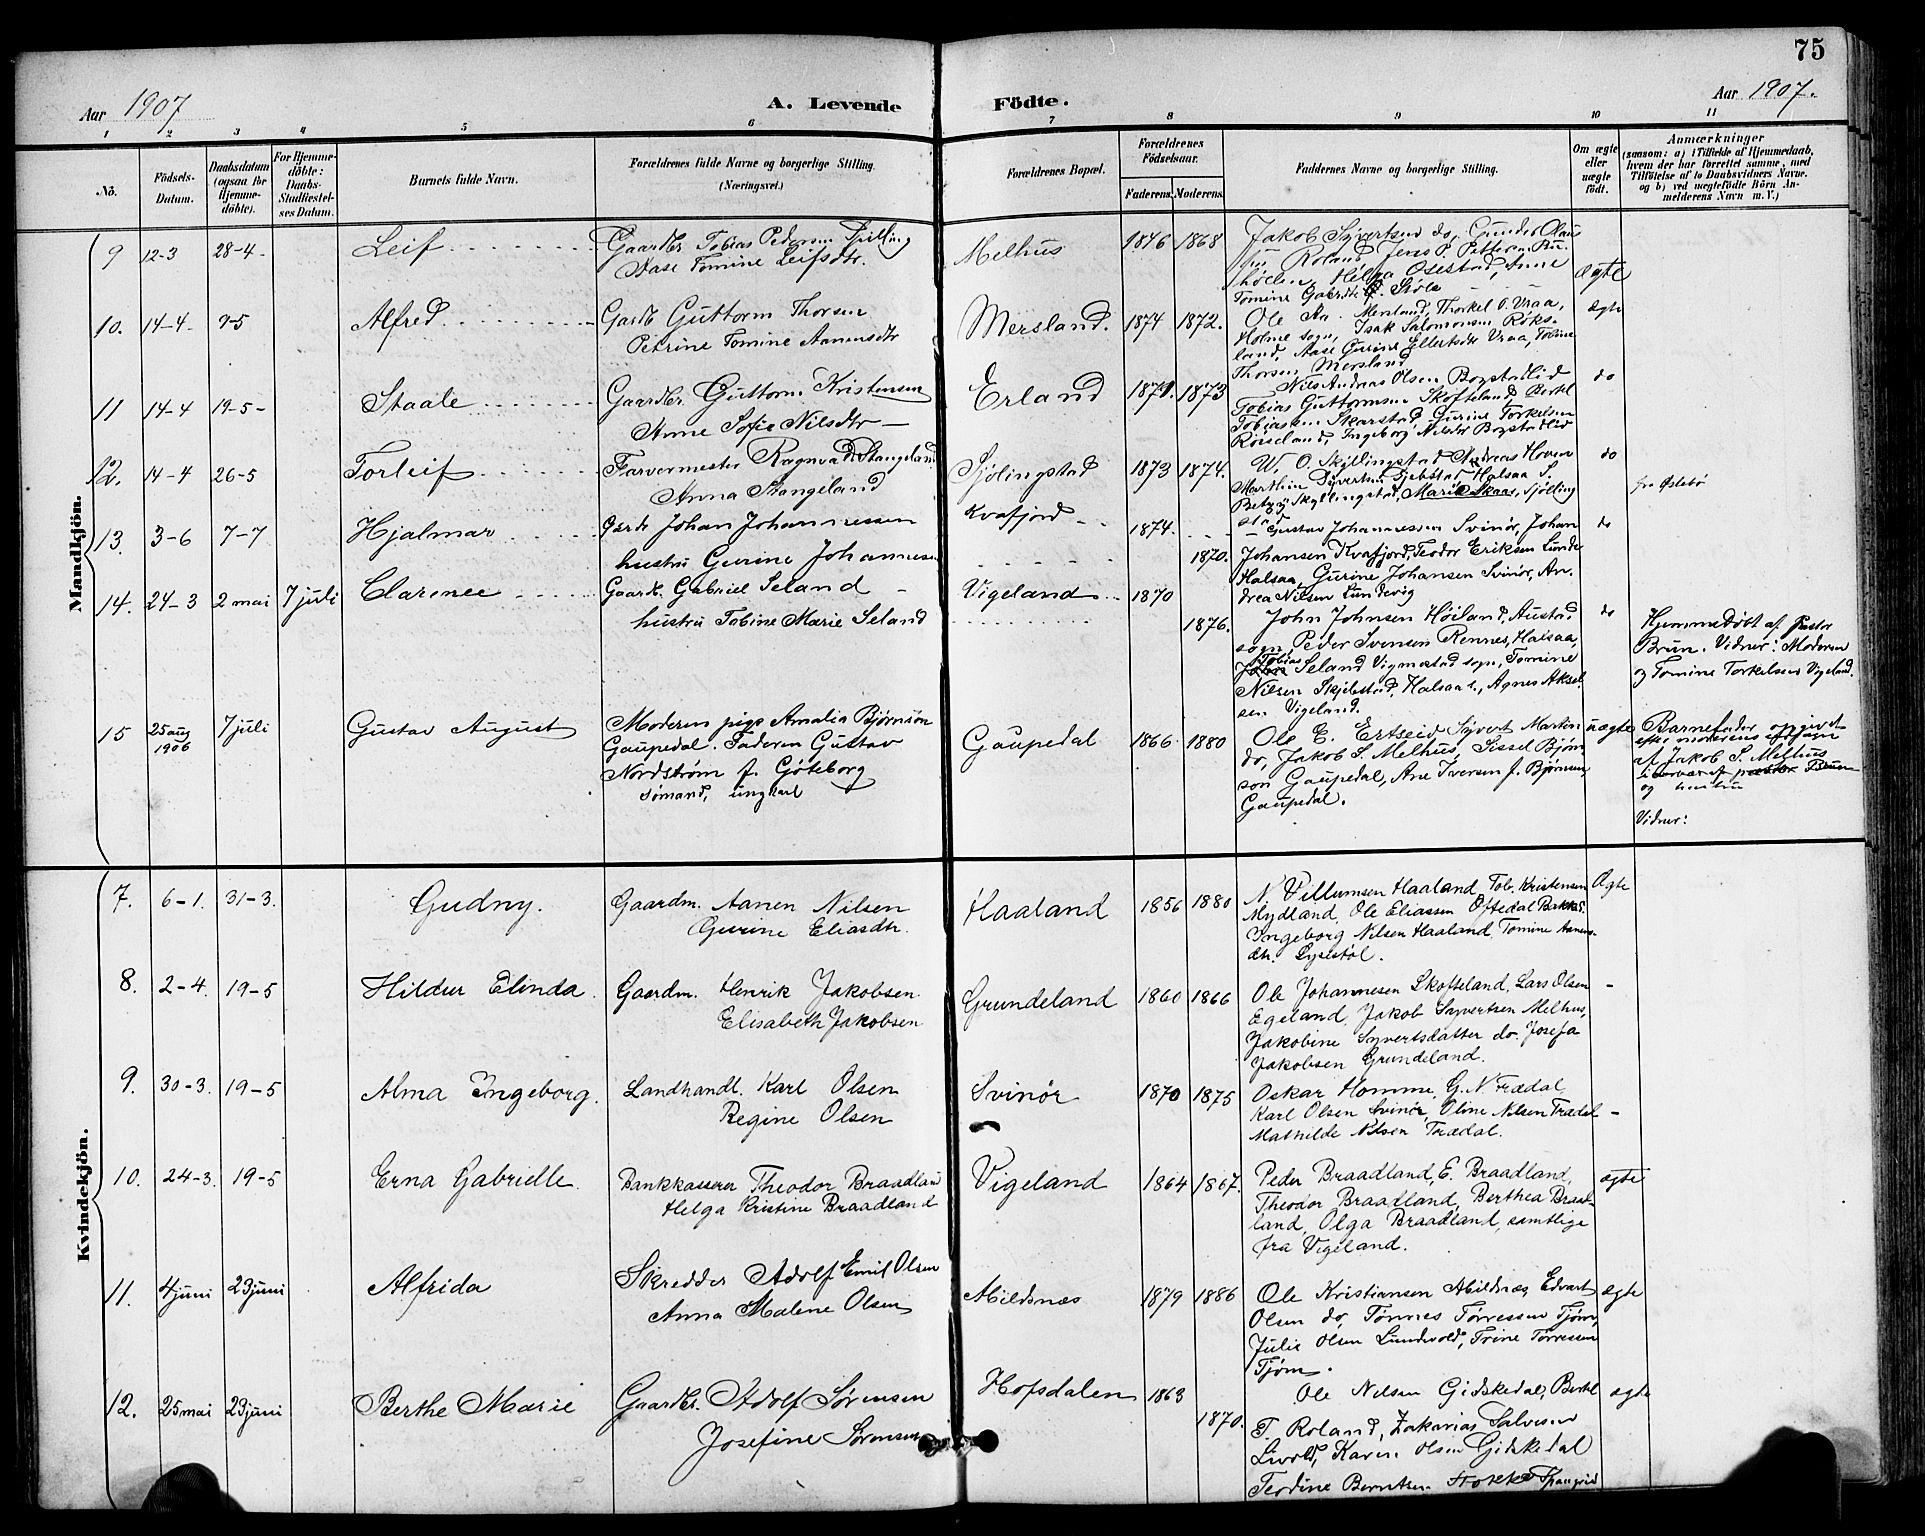 75
Aar 1907
A. Levende
Födte.
Aar 1907.
1 2 3 4 5 6 7 8 9 10 11
Nö.
Födsels-Datum.
Daabsdatum (ogsaa for Hjemme-döbte).
For Hjemme-döbte: Daabs-Stadfæstel-ses Datum.
Barnets fulde Navn.
Forældrenes fulde Navne og borgerlige Stilling.
(Næringsvei.)
Forældrenes Bopæl.
Forældrenes Födselsaar.
Faderens. Moderens.
Faddernes Navne og borgerlige Stilling.
Om ægte eller uægte födt.
Anmærkninger
(saasom: a) i Tilfælde af Hjemmedaab, hvem der har forrettet samme, med Tilföielse af to Daabsvidners Navne. og b) ved uægtefödte Börn An-melderens Navn m. V.)
Mandkjön.
9 12-3 28-4 Leif
Gaardbr Tobias Pedersen
Aase Tomine Leifsdtr.
Melhus 1846 1868
Jakob Syvertsen do, Gunder Olaus
Roland Jens P. Pettersen
Helga Osestad, Anne
Tomine Gabrdtr
ægte
10. 14-4 9-5 Alfred
Gardb Guttorm Thorsen
Petrine Tomine Aanensdtr
Mersland. 1874 1872.
Ole An. Mersland, Thorkel O. Vraa,
Holme sogn, Isak Salomonsen Röks-
land, Aase Gurine Ellertsdtr Vraa, Tobine
Thorsen Mersland
ægte
11 14-4 19-5 Staale
Gaardbr. Guttorm Kristensen
Anne Sofie Nilsdtr
Erland 1871. 1873
Nils Andreas Olsen Bogstadlid
Tobias Guttormsen Skofteland Bertel
Tobiassen Skarstad, Gurine Torkelsen
Röiseland, Ingeborg Nilsdtr Bogstadlid
do
12. 14-4 26-5 Torleif
Farvermester Ragnvald Stangeland
Anna Stangeland
Sjölingstad 1873 1874.
W. O. Skjillingstad Andreas Hoven
Marthin Syvertsen Gjebstad Halsaa S.
Betzy Skyllingstad, Marie Skaar, Sjölling
stad
do
fra Öslebö
13. 3-6 7-7 Hjalmar
Gardb Johan Johannessen
hustru Gurine Johannesen
Kvafjord 1874. 1870.
Gustav Johannessen Svinör, Johan
Johansen Kvafjord, Teodor Eriksen Lunde
Halsaa, Gurine Johansen Svinör, An-
drea Nilsen Lundevig
do
14. 24-3 2 mai 7 juli Clarence
Gaardb. Gabriel Seland
hustru Tobine Marie Seland
Vigeland 1870 1876.
John Johnsen Höiland, Austad
sogn, Peder Svensen Rennes, Halsaa,
Tobias Seland Vigmostad sogn, Tomine
Nilsen Skjebstad, Halsaa s., Agnes Aksel-
sen Vigeland.
do
Hjemmedöbt af Pastor
Brun. Vidner: Moderen
og Tomine Torkelsen Vigeland.
15 25 aug 1906 7 juli Gustav August
Moderen pige Amalia Björnsön
Gaupedal. Faderen Gustav
Nordström f. Göteborg
sömand, ungkarl
Gaupedal 1866 1880
Ole E. Ertseid Syvert Martin
do, Jakob S. Melhus, Sissel Björn
son Gaupedal, Ane Iversen f. Björnsen,
Gaupedal.
uægte
Barnefader opgivet
efter moderens
af Jakob S. Melhus
og hustru
Vidner:
Kvindekjön.
7. 6-1. 31-3. Gudny.
Gaardm. Aanen Nilsen
Gurine Eliasdtr.
Haaland 1856 1880
N. Villumsen Haaland, Tob. Kristensen
Mydland, Ole Eliassen Öftedal
Ingeborg Nilsen Haaland, Tomine Aanens-
dtr. Lyselstöl.
Ægte
8. 2-4. 19-5 Hildur Elinda.
Gaardm. Henrik Jakobsen
Elisabeth Jakobsen
Grundeland 1860 1866
Ole Johannesen Skofteland, Lars Olsen
Egeland, Jakob Syvertsen Melhus,
Jakobine Syvertsdatter do. Josefa
Jakobsen Grundeland.
-
9. 30-3. 19-5 Alma Ingeborg.
Landhandl. Karl Olsen
Regine Olsen
Svinör 1870 1875
Oskar Homme, G. N. Trædal
Karl Olsen Svinör, Oline Nilsen Trædal
Mathilde Nilsen Trædal.
-
10. 24-3. 19-5 Erna Gabrielle.
Bankkasserer Theodor Braadland
Helga Kristine Braadland
Vigeland 1864 1867.
Peder Braadland, E. Braadland,
Theodor Braadland, Berthea Braad-
land, Olga Braadland, samtlige
fra Vigeland.
ægte
11. 4 juni 23 juni Alfrida
Skredder Adolf Emil Olsen
Anna Malene Olsen
Mildsnæs 1879 1886
Ole Kristiansen Mildsnæs, Edvart
Olsen do, Tönnes Törressen Tjöm,
Julie Olsen Lundevold, Trine Törressen
Tjöm.
ægte
12. 25 mai 23 juni Berthe Marie
Gaardbr. Adolf Sörensen
Josefine Sörensen
Hofsdalen 1863 1870.
Ole Nilsen Gidskedal, Bertel
T. Roland, Zakarias Salvesen
Livold, Karen Olsen Gidskedal
Terdine Berntsen
ægte